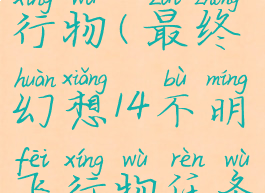 xíng wù zuì zhōng
行物(最终
huàn xiǎng bù míng
幻想14不明
fēi xíng wù rèn wù
飞行物任务